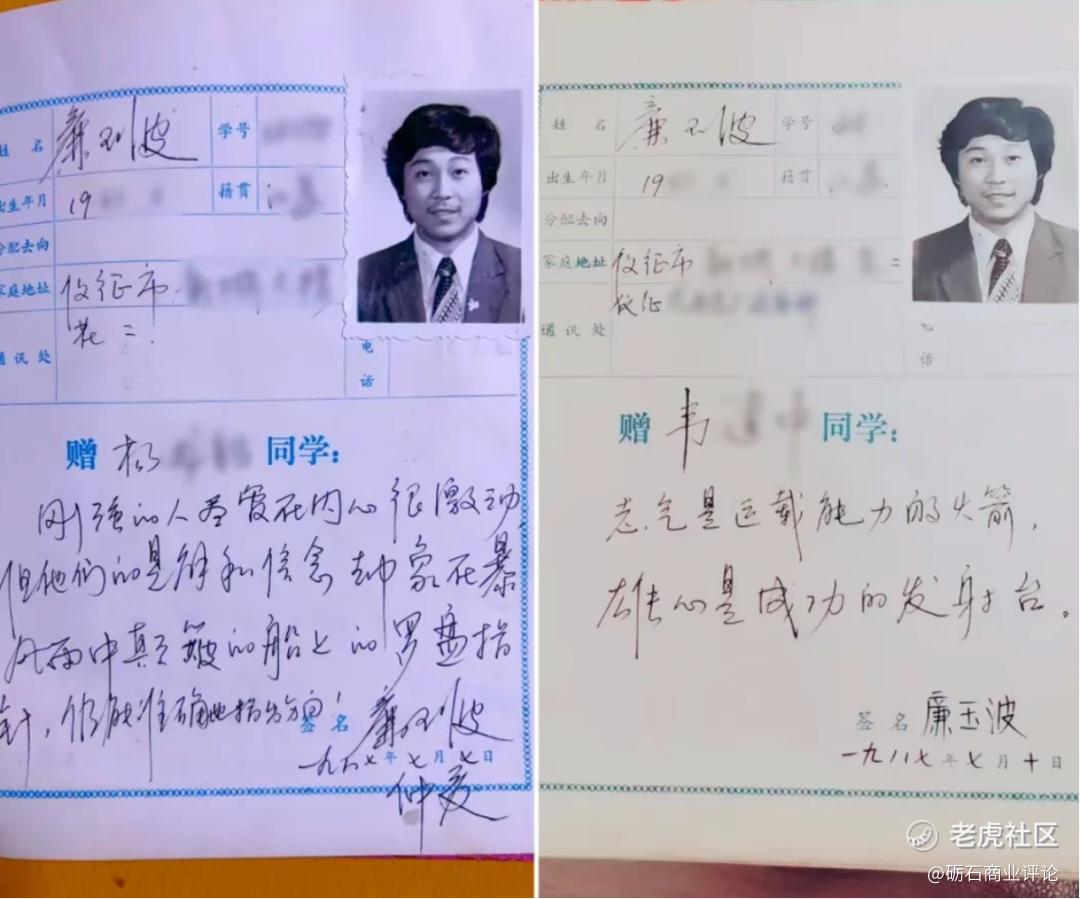 姓 名 廉玉波 学号
出生年月 19 籍贯
分配去向
家庭地址 仪征市
通讯处
电话
赠 杨 同学:
刚强的人尽管在内心很激动,
但他们的见解和信念却象在暴
风雨中颠簸的船上的罗盘指
针,仍能准确地指出方向!
签名 廉玉波
一九八七年七月七日
仲夏
姓 名 廉玉波 学号
出生年月 19 籍贯
分配去向
家庭地址 仪征市
仪征
通讯处
电话
赠 韦 同学:
志气是运载能力的火箭,
雄心是成功的发射台。
签名 廉玉波
一九八七年七月十日
老虎社区
@砺石商业评论